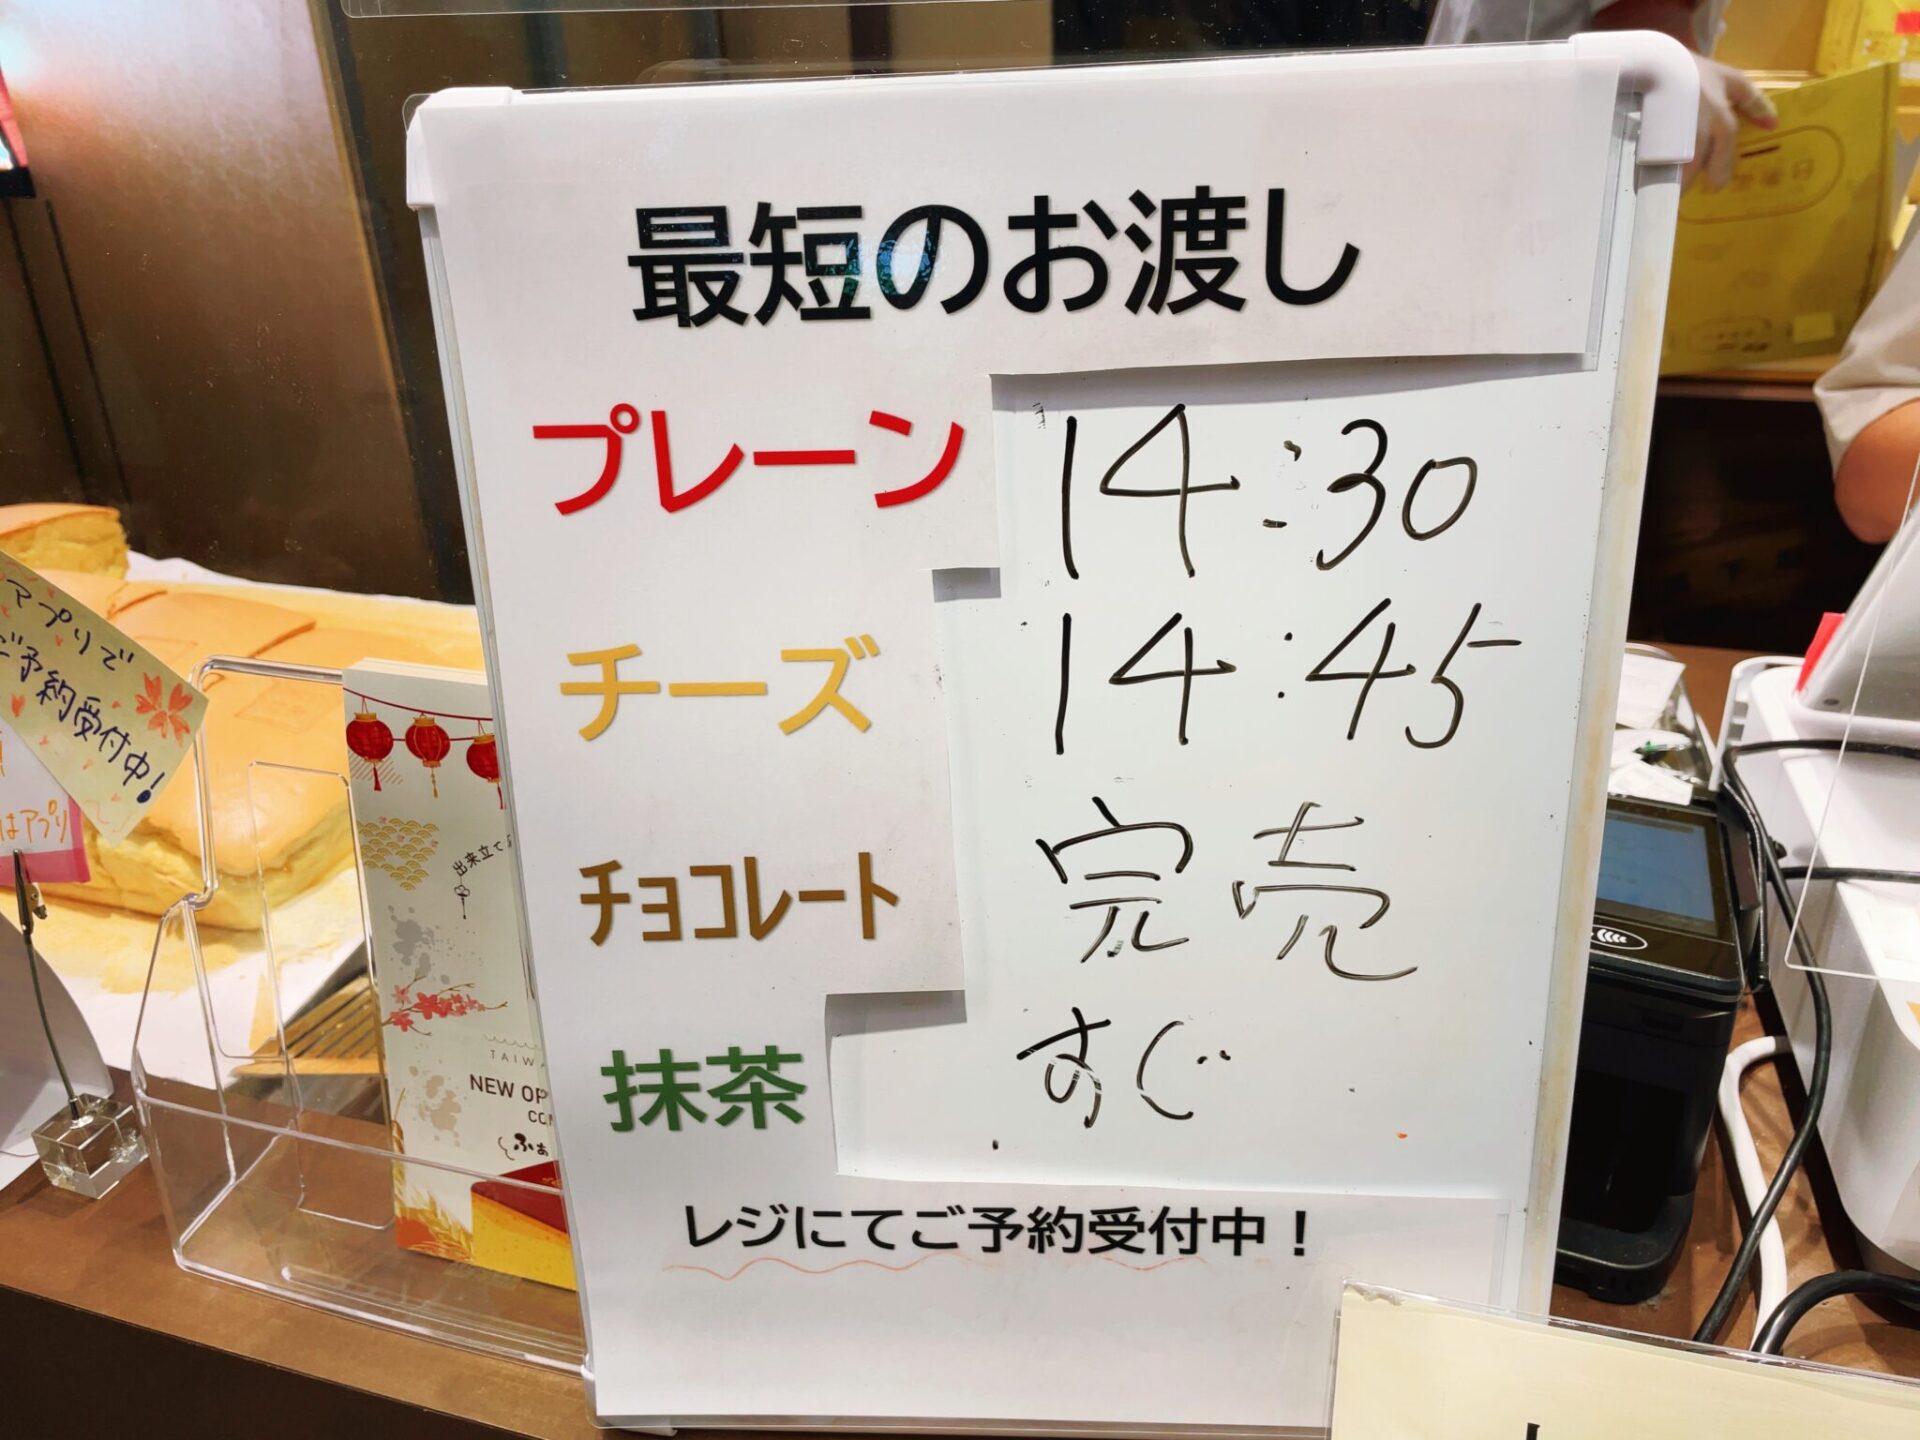 最短のお渡し
プレーン 14:30
チーズ 14:45
チョコレート 完売
抹茶 すぐ
レジにてご予約受付中!
アプリで
ご予約受付中!
はアプリ
出来立て
TAIW
NEW OP